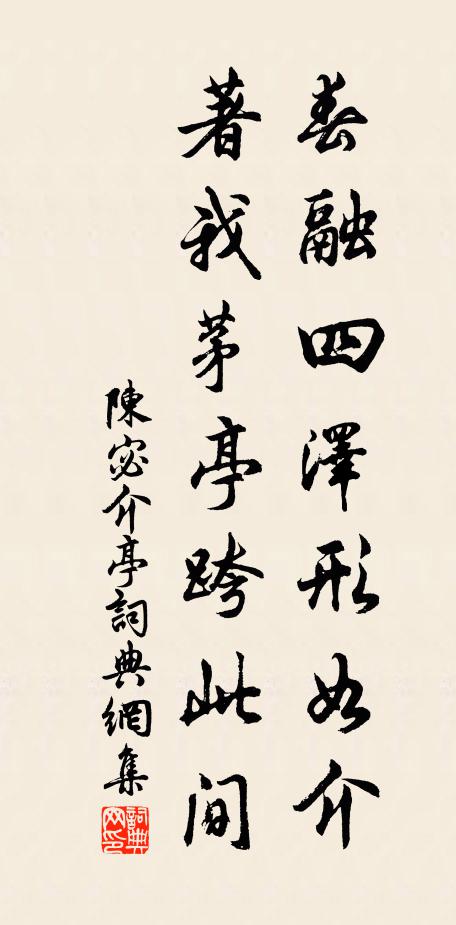 春融四澤形如介
著我茅亭跨此间
陳宓介亭詞典網集
詞典网印